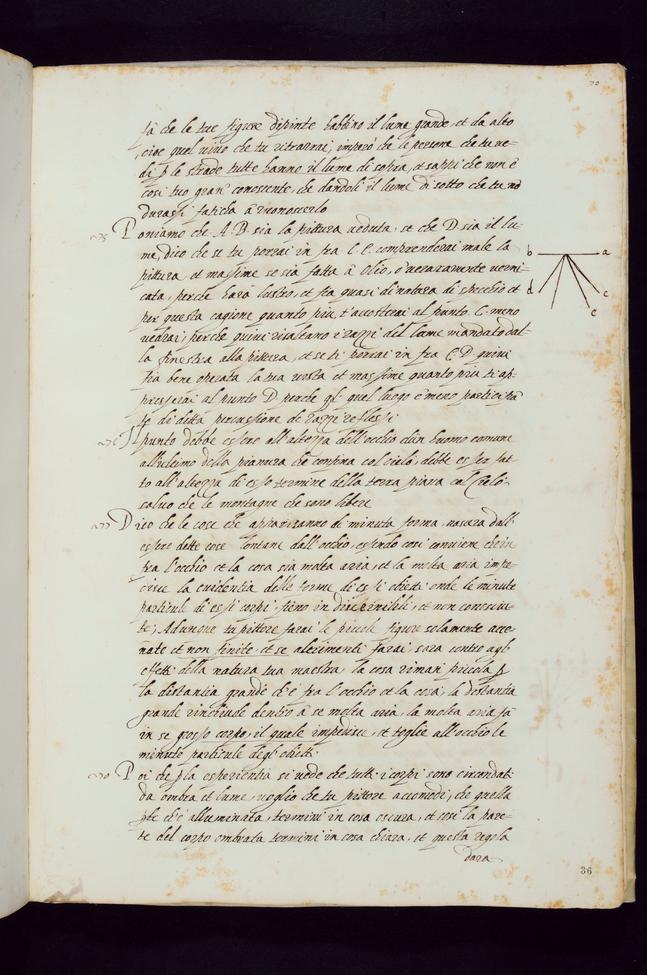 fà che le tue figure dipinte habbino il lume grande, et da alto
cioe quel uiuo che tu ritrarrai, imperò che le persone che tu ue-
di p le strade tutte hanno il lume di sopra, et sappi che non è
cosi tuo gran conoscente, che dandoli il lume di sotto che tu nō
durassi faticha à riconoscerlo
Poniamo che A. B. sia la pittura ueduta, et che D. sia il lu-
me, dico che se tu porrai in fra C. E. comprenderai male la
pittura, et massime se sia fatta à olio, o ueramente uerni-
cata, perche harà lustro, et fia quasi di natura di specchio et
per questa cagione quanto piu t'accosterai al punto C. meno
uedrai, perche quiui risaltano i razzi del lume mandato dal-
la finestra alla pittura, et se ti porrai in fra E. D. quiui
fia bene operata la tua uista et massime quanto piu ti ap-
presserai al punto D. perche quel luogo è meno participā
te di detta percussione de razzi reflessi
Il punto debbe essere all'altezza dell'occhio d'un huomo comune
all'ultimo della pianura che confina col cielo, debbe esser fat
to all'altezza di esso termine della terra piana col cielo.
saluo che le montagne che sono libere
Dico che le cose che appariranno di minuta forma, nascera dall'
essere dette cose lontane dall'occhio, essendo cosi conuiene che in
fra l'occhio et la cosa sia molta aria, et la molta aria impe-
disce la euidentia delle forme di essi obietti onde le minute
particule di essi corpi, sieno indiscernibili, et non conosciu-
te; Adunque tu pittore farai le piccole figure solamente acce-
nate et non finite, et se altrimenti farai, sara contro agli
effetti della natura tua maestra, la cosa riman piccola p
la distantia grande ch'è fra l'occhio et la cosa, la distantia
grande rinchiude dentro à se molta aria, la molta aria fà
in se grosso corpo, il quale impedisce, et toglie all'occhio le
minute particule degli obietti
Poi che p la esperientia si uede che tutti i corpi sono circondati
da ombra et lume, uoglio che tu pittore accomodi, che quella
pte ch'è alluminata, termini in cosa oscura, et cosi la par-
te del corpo ombrata termini in cosa chiara, et questa regola
dara
b a
d c
e
36